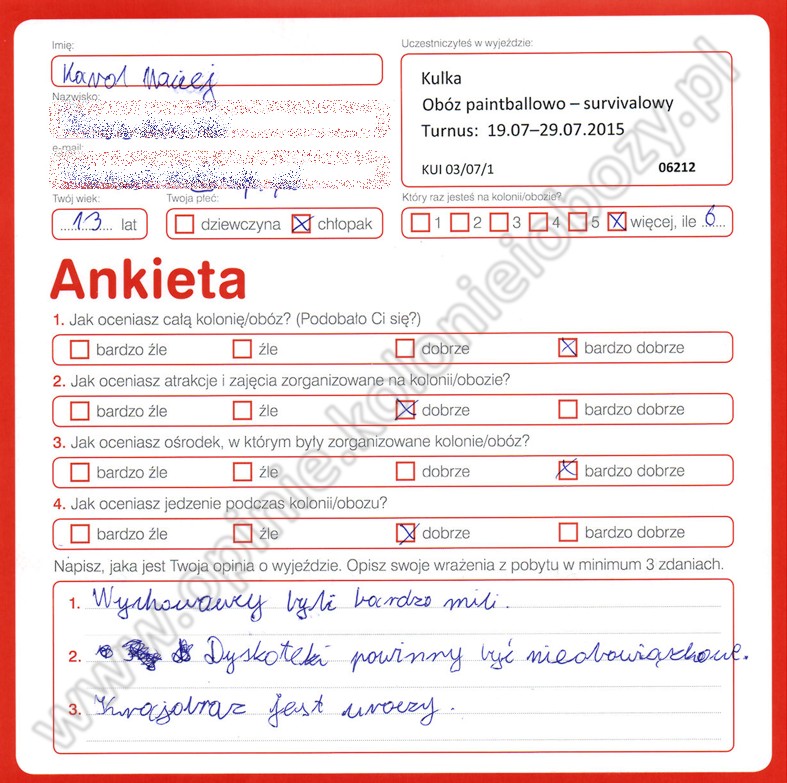 Imię:
Karol Maciej
Nazwisko:
e-mail:
Twój wiek:
13 lat
Twoja płeć:
dziewczyna chłopak
Uczestniczyłeś w wyjeździe:
Kulka
Obóz paintballowo – survivalowy
Turnus: 19.07–29.07.2015
KUI 03/07/1 06212
Który raz jesteś na kolonii/obozie?
1 2 3 4 5 więcej, ile 6
Ankieta
1. Jak oceniasz całą kolonię/obóz? (Podobało Ci się?)
bardzo źle źle dobrze bardzo dobrze
2. Jak oceniasz atrakcje i zajęcia zorganizowane na kolonii/obozie?
bardzo źle źle dobrze bardzo dobrze
3. Jak oceniasz ośrodek, w którym były zorganizowane kolonie/obóz?
bardzo źle źle dobrze bardzo dobrze
4. Jak oceniasz jedzenie podczas kolonii/obozu?
bardzo źle źle dobrze bardzo dobrze
Napisz, jaka jest Twoja opinia o wyjeździe. Opisz swoje wrażenia z pobytu w minimum 3 zdaniach.
1. Wychowawcy byli bardzo mili.
2. Dyskoteki powinny być nieobowiązkowe.
3. Krajobraz jest uroczy.
www.opinie.kolonieiobozy.pl